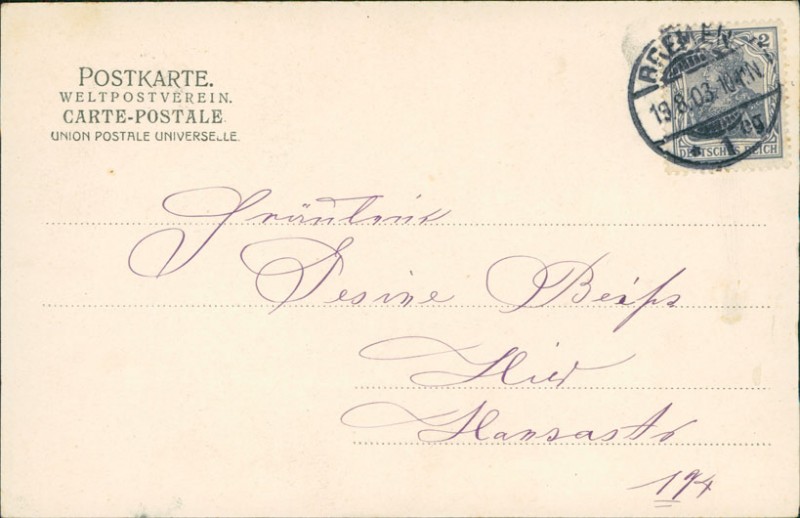 POSTKARTE.
WELTPOSTVEREIN.
CARTE-POSTALE.
UNION POSTALE UNIVERSELLE.
BREMEN
19.8.03.
* 1
2
DEUTSCHES REICH
Fräulein
Gesine
Hier
Hansastr
194